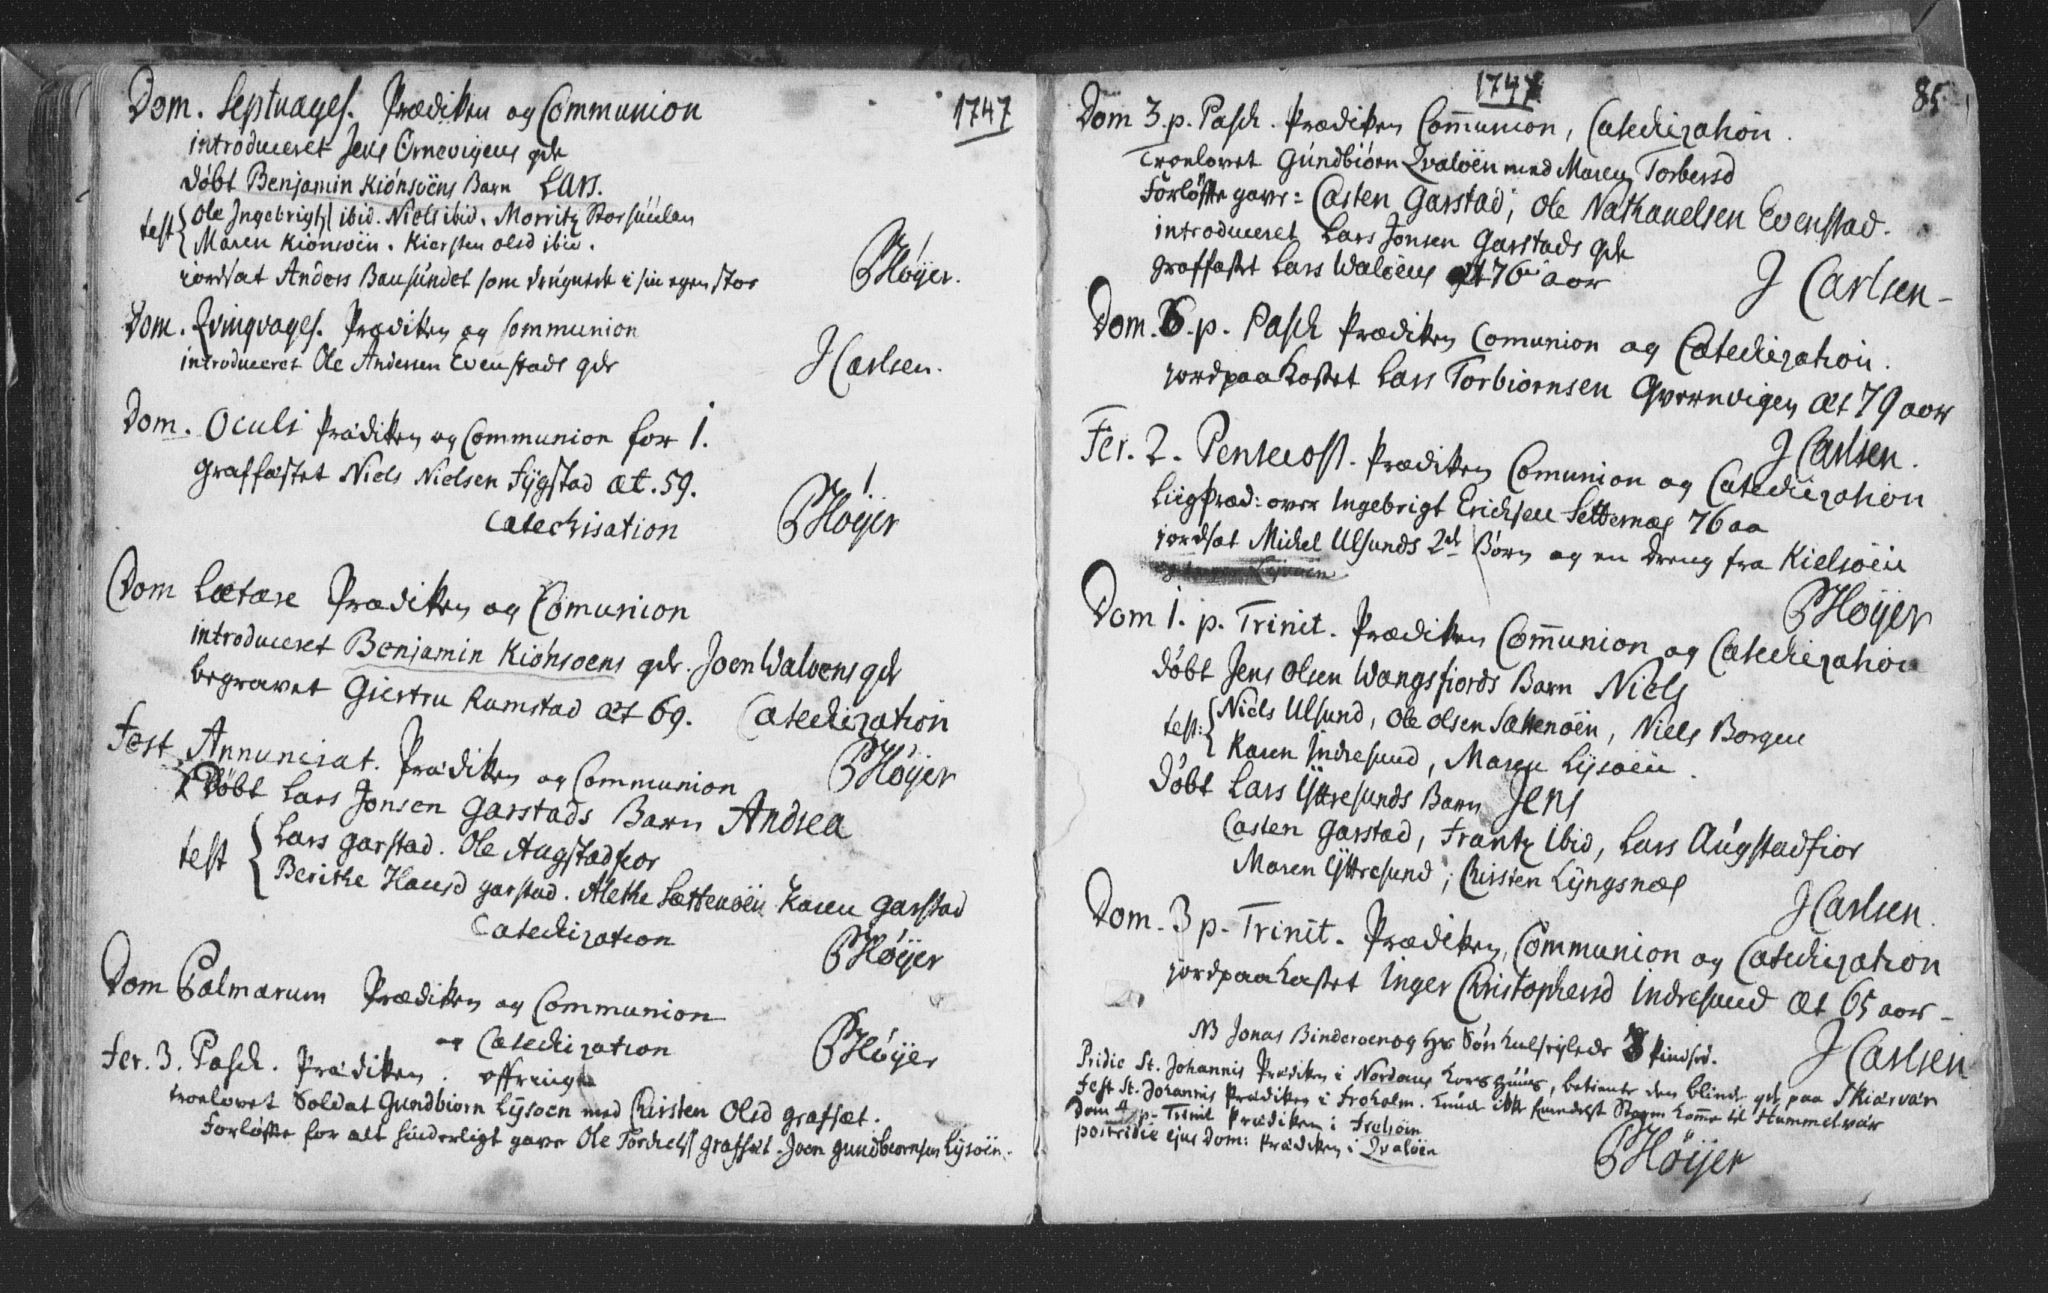 1747
Dom. Septuages. Prædiken og Communion
introduceret Jens Ornevigens qde
døbt Benjamin Kiönsöens Barn Lars.
test { Ole Ingebrigtss ibid. Niels ibid. Morritz
Maren Kiönsöen. Kiersten olsd ibid.
iordsat Anders Bausundet som drugnede i sin egen
PHøyer.
Dom. Qvinqvages. Prædiken og Communion
introduceret Ole Andersen Evenstads qde
J Carlsen.
Dom. Oculi Prædiken og Communion for 1.
graffæstet Niels Nielsen Sÿgstad æt. 59.
Catechisation
PHøyer
Dom Lætare Prædiken og Comunion
introduceret Benjamin Kiönsoens qde. Joen Waloens qde
begravet Giertru Ramstad æt 69. Catechization
PHøijer
Fest Annunciat. Prædiken og Communion
Døbt Lars Jonsen Garstads Barn Andrea
test { Lars Garstad. Ole Augstadfior
Berithe Hansd garstad. Alethe Sættenöen Karen Garstad
Catechization
PHøijer
Dom Palmarum Prædiken og Communion
og Catechization
PHøijer
Fer. 3. Pasch. Prædiken. offring
troelovet Soldat Gundbiorn Lysoen med Kirsten Olsd grafsæt.
Forløfte for alt sinderligt gave Ole grafsæt. Joen gundbiornsen Lysöen.
1747
85
Dom 3. p. Pasch. Prædiken Com̄union, Catechization.
Troelovet Gundbiörn Qvalöen med Maren Torbersd
Forløfte gave: Casten Garstad; Ole Nathanelsen Evenstad.
introduceret Lars Jonsen Garstads qde
graffæstet Lars Walöens æt 76 aar
J Carlsen
Dom. 6. p. Pasch Prædiken Comunion og Catechization.
jordpaakastet Lars Torbiornsen Qvernvigen æt 79 aar
J Carlsen.
Fer. 2. Pentecost. Prædiken Comunion og Catechization
Liigpræd: over Ingebrigt Erichsen Setternæs 76 aa
jordsat Michel Ulsunds 2de Børn og en Dreng fra Kielsöen
PHøijer
Dom 1. p. Trinit. Prædiken Com̄union og Catechization
døbt Jens Olsen Wangsfiords Barn Niels
test: { Niels Ulsund, Ole Olsen Sættenöen, Niels Borgen
Karen Indresund, Maren Lysöen.
Døbt Lars Yttresunds Barn Jens
Casten Garstad, Frantz ibid, Lars Augstadfior
Maren Yttresund; Kirsten Lyngsnæs
J Carlsen.
Dom. 3 p. Trinit. Prædiken, Communion og Catechization
jordpaakastet Inger Christophersd Indresund æt 65 aar
J Carlsen
NB Jonas Binderoen og hs Søn hulseylede 3 Pindsd.
Pridie St. Johannis Prædiken i Nordans Korshuus, betiente den blinde qde paa Skiærvær
Fest St. Johannis Prædiken i Froholm. kunde ikke Storm kom̄e til Hummelvær
Dom 4 p. Trinit Prædiken i Frelsöen
postridie ejus Dom: Prædiken i Qvalöen
PHøijer